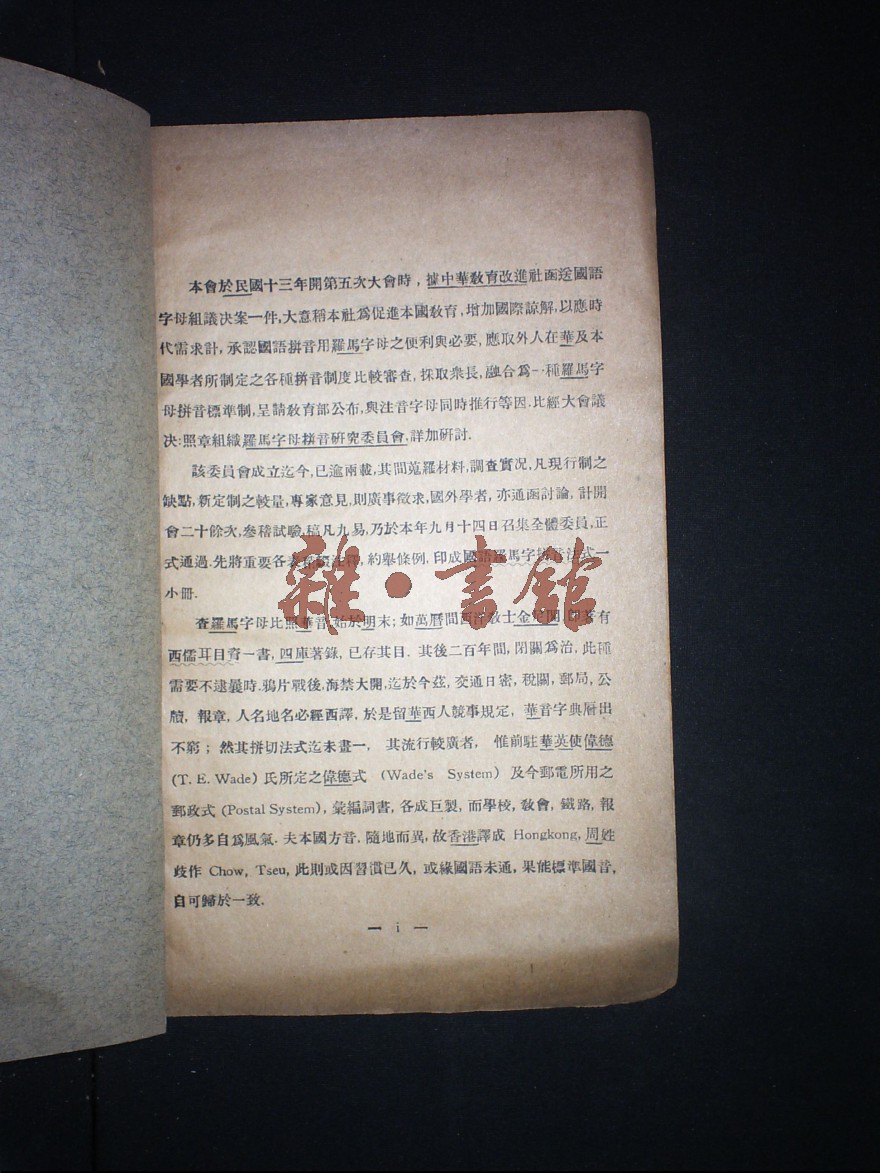 本會於民國十三年開第五次大會時，據中華敎育改進社函送國語
字母組議决案一件，大意稱本社爲促進本國敎育，增加國際諒解，以應時
代需求計，承認國語拼音用羅馬字母之便利與必要，應取外人在華及本
國學者所制定之各種拼音制度比較審查，採取衆長，融合爲一種羅馬字
母拼音標準制，呈請敎育部公布，與注音字母同時推行等因．比經大會議
决：照章組織羅馬字母拼音研究委員會，詳加研討．
該委員會成立迄今，已逾兩載，其間蒐羅材料，調查實况，凡現行制之
缺點，新定制之較量，專家意見，則廣事徵求，國外學者，亦通函討論，計開
會二十餘次，參稽試驗，稿凡九易，乃於本年九月十四日召集全體委員，正
式通過．先將重要各表，約舉條例，印成國語羅馬字拼音法式一
小冊．
查羅馬字母比照華音，始於明末；如萬曆間西洋敎士金尼閣，即著有
西儒耳目資一書，四庫著錄，已存其目．其後二百年間，閉關爲治，此種
需要不逮曩時．鴉片戰後，海禁大開，迄於今茲，交通日密，稅關，郵局，公
牘，報章，人名地名必經西譯，於是留華西人競事規定，華音字典層出
不窮；然其拼切法式迄未畫一，其流行較廣者，惟前駐華英使偉德
(T. E. Wade) 氏所定之偉德式 (Wade's System) 及今郵電所用之
郵政式 (Postal System)，彙編詞書，各成巨製，而學校，敎會，鐵路，報
章仍多自爲風氣．夫本國方音，隨地而異，故香港譯成 Hongkong，周姓
歧作 Chow, Tseu，此則或因習慣已久，或緣國語未通，果能標準國音，
自可歸於一致．
— i —
雜·書館